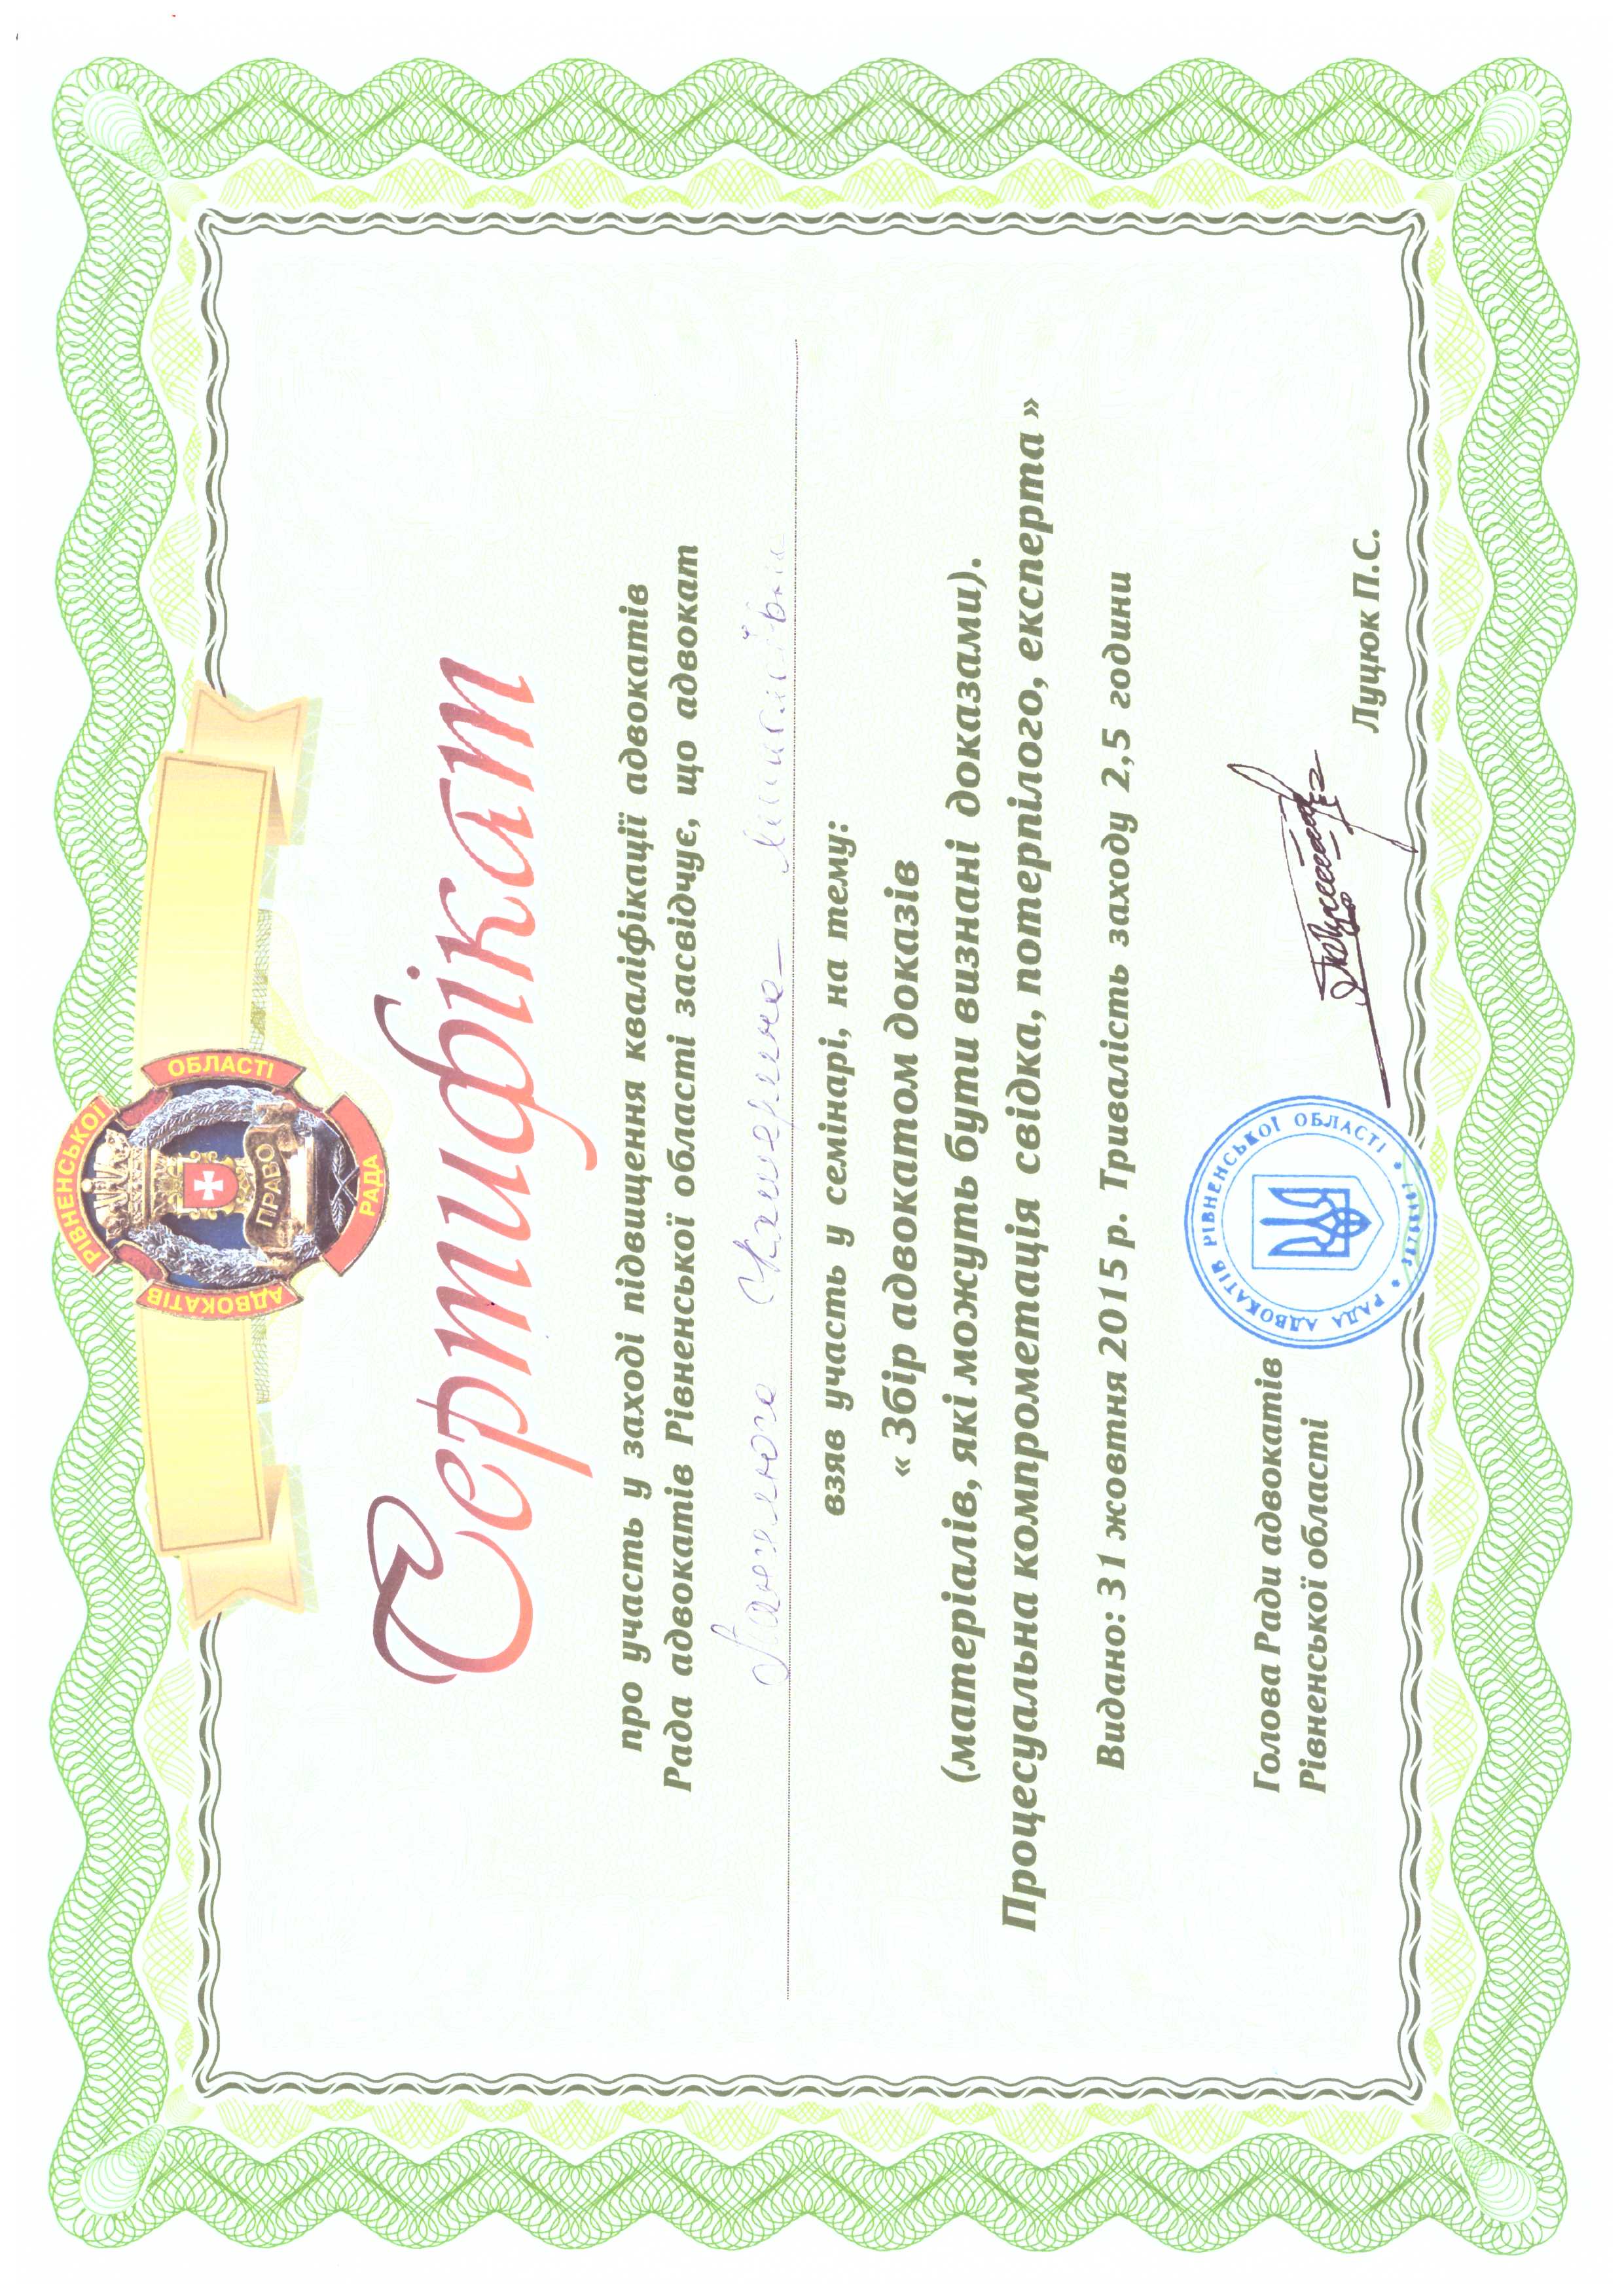 РАДА АДВОКАТІВ РІВНЕНСЬКОЇ ОБЛАСТІ
ПРАВО
Сертифікат
про участь у заході підвищення кваліфікації адвокатів
Рада адвокатів Рівненської області засвідчує, що адвокат
Катерина
взяв участь у семінарі, на тему:
« Збір адвокатом доказів
(матеріалів, які можуть бути визнані доказами).
Процесуальна компрометація свідка, потерпілого, експерта »
Видано: 31 жовтня 2015 р. Тривалість заходу 2,5 години
Голова Ради адвокатів
Рівненської області
РАДА АДВОКАТІВ РІВНЕНСЬКОЇ ОБЛАСТІ
Луцюк П.С.